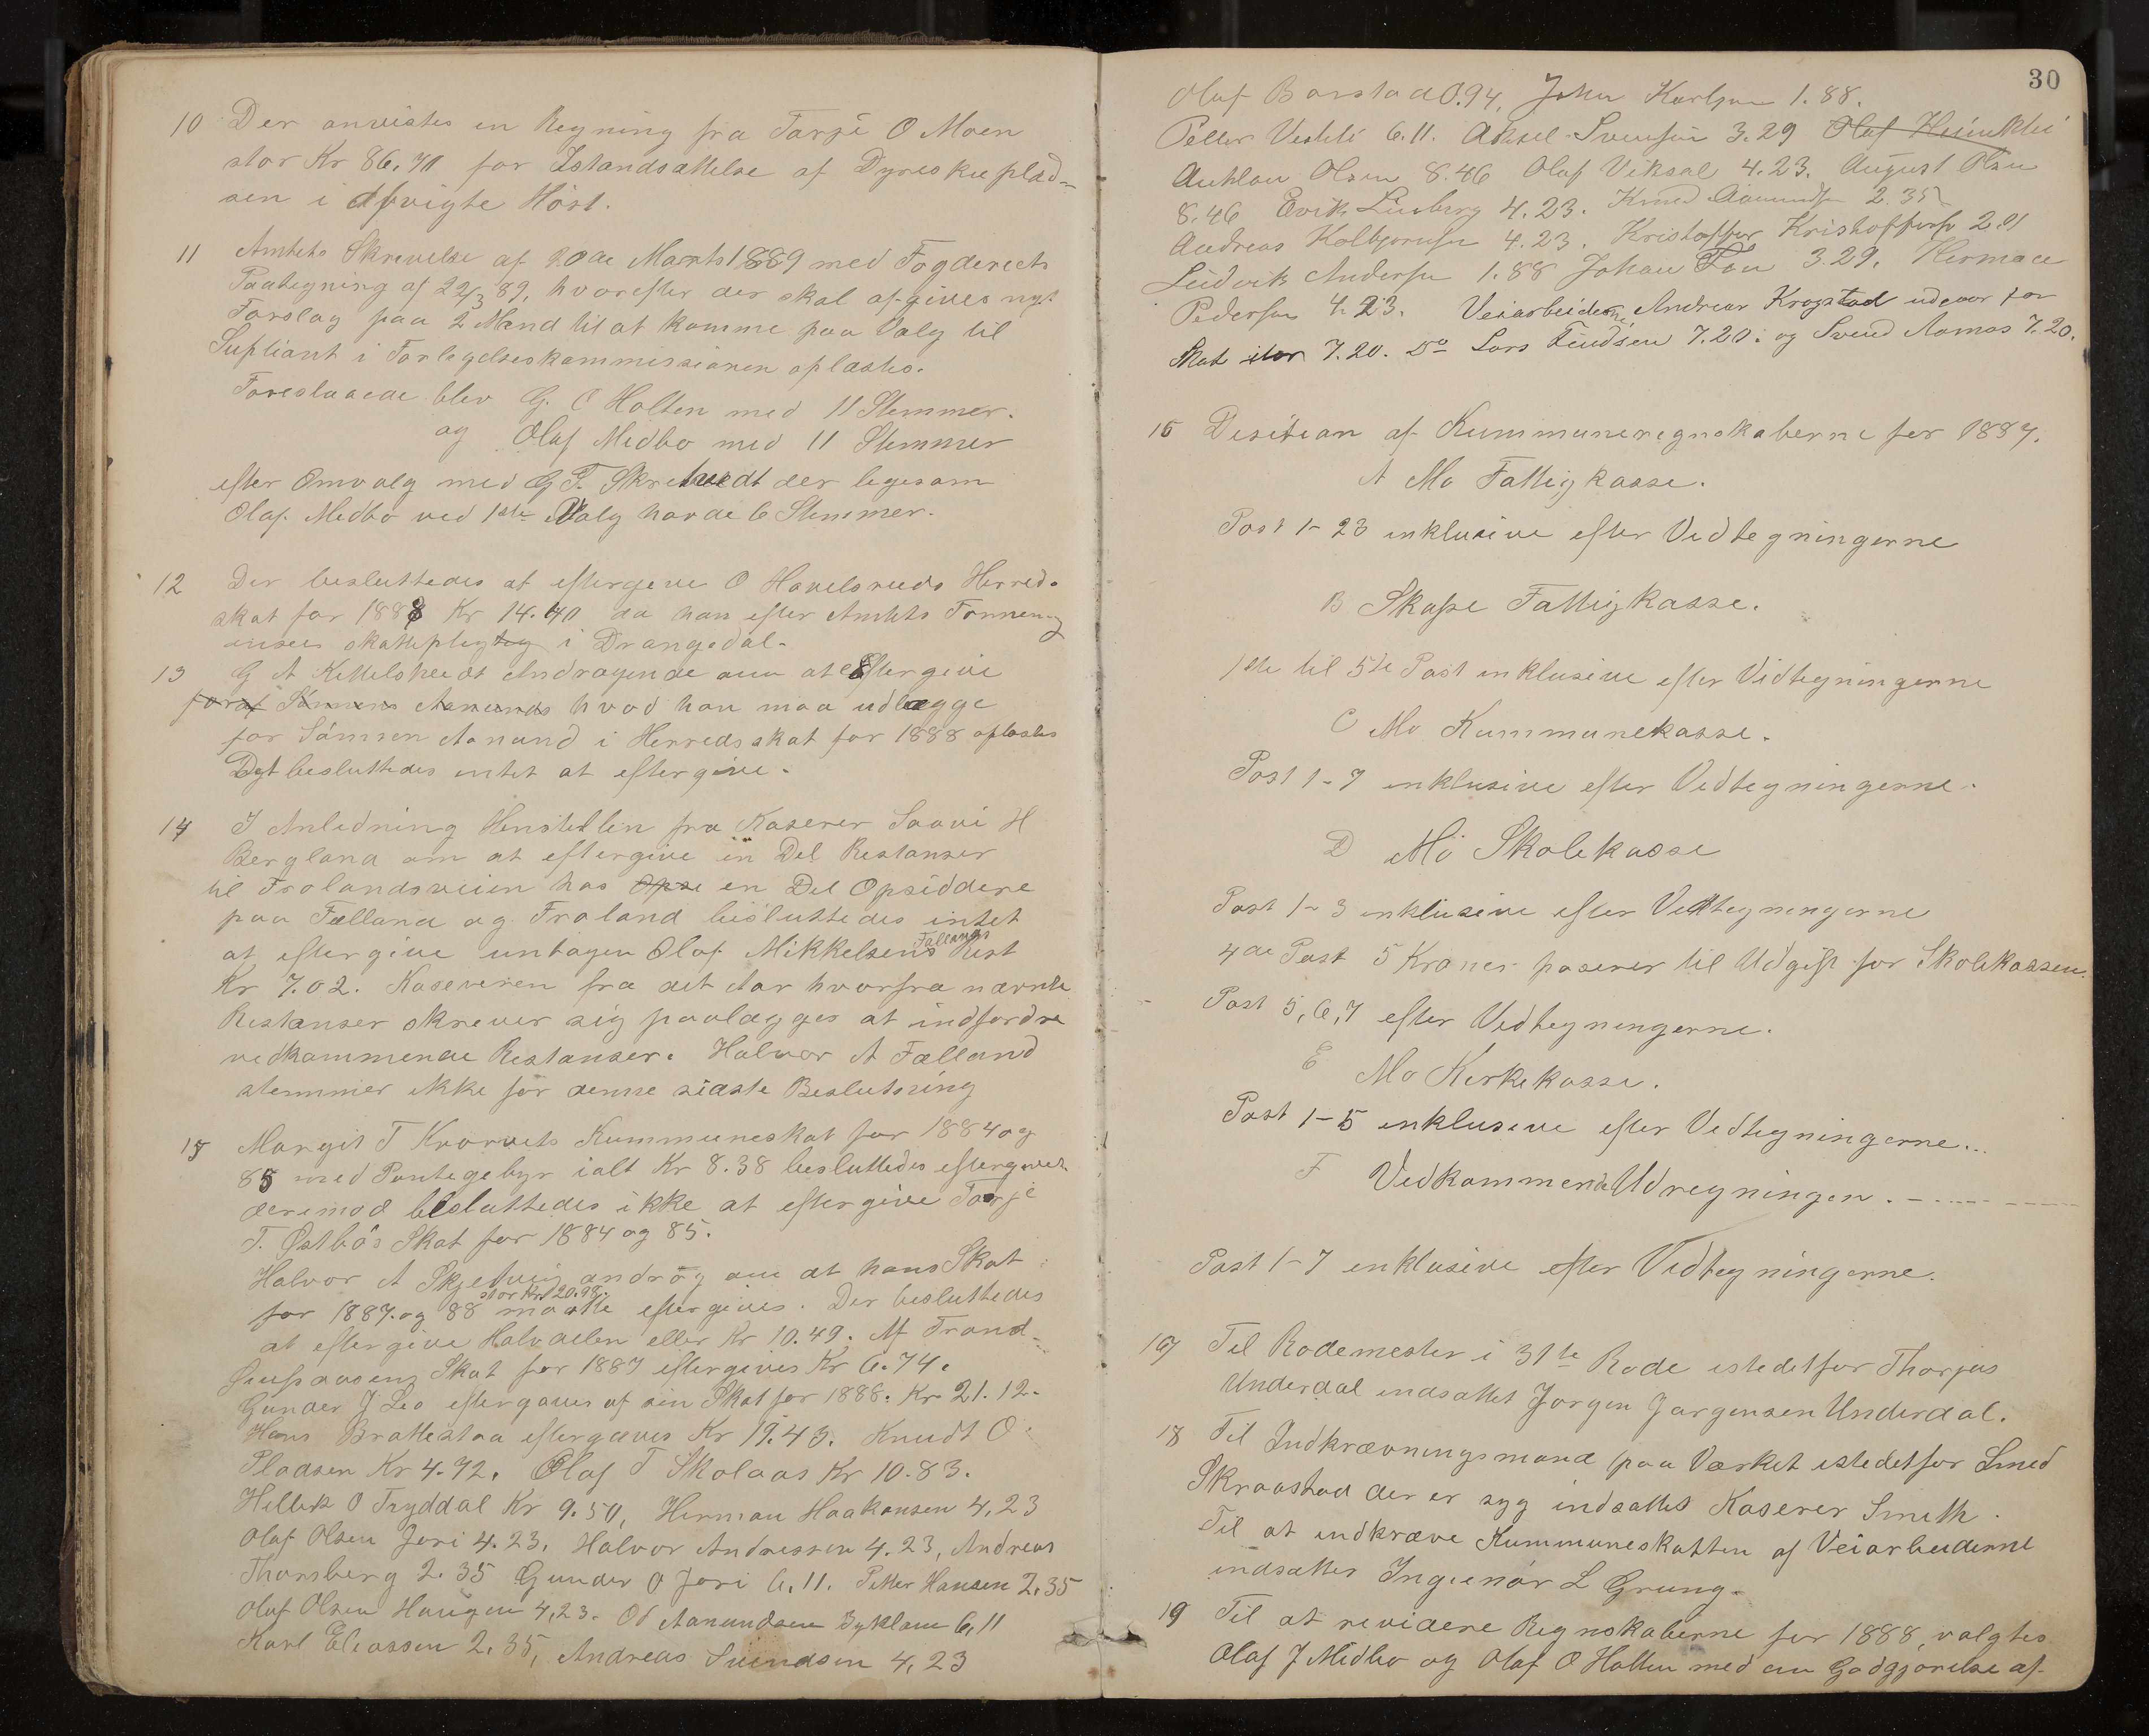 10 Der anvistes en Regning fra Tarje O Moen
stor Kr 86.70 for Istandsættelse af Dyreskueplad-
sen i afvigte Høst.
11 Amtets Skrivelse af 20de Marts 1889 med Fogderiets
Paategning af 22/3 89, hvorefter der skal afgives nyt
Forslag paa 2 Mænd til at komme paa Valg til
Supliant i Forligelseskommissionen oplæstes.
Foreslaaede blev G. O Holten med 11 Stemmer.
og Olaf Medbø med 11 Stemmer
efter Omvalg med G T. Skrehvedt der ligesom
Olaf Medbø ved 1ste Valg havde 6 Stemmer.
12 Der besluttedes at eftergive O Haukelsruds Herred-
skat for 1888 Kr 14.40 da han efter Amtets Formening
ansees skattepligtig i Drangedal-
13 G A Kittelsheedt Andragende om at Eftergive
foraf Sønnens Aanunds hvad han maa udlægge
for Sønnen Aanund i Herredsskat for 1888 oplæstes
Dgt besluttedes intet at eftergive.
14 I Anledning Henstillen fra Kaserer Saavi H
Bergland om at eftergive en Del Restanser
til Frolandsveien hos Opse en Del Opsiddere
paa Fælland og Froland besluttedes intet
at eftergive untagen Olaf Mikkelsens Fællands Rest
Kr 7.02. Kasereren fra det Aar hvorfra nævnte
Restanser skriver sig paalægges at indfordre
vedkommende Restanser. Halvor A Fælland
stemmer ikke for denne sidste Beslutning
15 Margit T Kvorvets Kummuneskat for 1884 og
85 med Pantegebyr ialt Kr 8.38 besluttedes eftergivet
derimod besluttedes ikke at eftergive Tarje
T. Østbø's Skat for 1884 og 85.
Halvor A Skjelveig androg om at hans Skat
for 1887. og 88 stor Kr 20.98. maatte eftergives. Der besluttedes
at eftergive Halvdelen eller Kr 10.49. Af Trond-
Skat for 1887 eftergives Kr 6.74.
Gunder J Leo eftergaves af sin Skat for 1888. Kr 21.12.
Hans Brattestaa eftergaves Kr 19.43. Knudt O
Pladsen Kr 4.72. Olaf T Skolaas Kr 10.83.
Hellek O Tryddal Kr 9.50, Herman Haakonsen 4,23
Olaf Olsen Jori 4.23, Halvor Andressen 4.23, Andreas
Thorsberg 2.35 Gunder O Jori 6.11. Petter Hansen 2,35
Olaf Olsen Haugen 4,23. Ol Aanundsen Byklum 6,11
Karl Eliassen 2.35, Andreas Svendsen 4,23
30
Oluf Borstad 0.94, John Karlsen 1.88.
Petter Vestli 6.11. Aksel Svensen 3.29 Olaf
Anklau Olsen 8.46 Olaf Viksal 4.23. August Olsen
8.46 Erik Linberg 4.23. Knud Aanunds 2.35
Andreas Kolbjornsen 4.23. Kristoffer Kristoffersen 2.
Ludvik Andersen 1.88 Johan Fon 3.29. Herman
Pedersen 4.23. Veiarbeiderne, Andreas Krogstad udgaar for
Skat stor 7.20. Do Lars Findsen 7.20. og Svend Aamas 7.20.
16 Desition af Kummuneregnskaberne for 1887.
A Mo Fattigkasse.
Post 1-23 inklusive efter Vedtegningerne
B Skafse Fattigkasse.
1ste til 5te Post inklusive efter Vedtegningerne
C Mo Kummunekasse.
Post 1-7 inklusive efter Vedtegningerne.
D Mo Skolekasse
Post 1-3 inklusive efter Vedtegningerne
4de Post 5 Kroner paserer til Udgift for Skolekassen.
Post 5,6,7 efter Vedtegningerne.
E Mo Kirkekasse.
Post 1-5 inklusive efter Vedtegningerne...
F Vedkommende Udregningen.
Post 1-7 inklusive efter Vedtegningerne.
17 Til Rodemester i 31te Rode istedetfor Thorjus
Underdal indsattes Jorgen Jorgensen Underdal.
18 Til Indkrævningsmand paa Værket istedetfor Smed
Skraastad der er syg indsattes Kaserer Smith.
Til at indkræve Kummuneskatten af Veiarbeiderne
indsattes Ingeniør L Grung.
19 Til at revidere Regnskaberne for 1888, valgtes
Olaf J Medbø og Olaf O Holten med en Godgjørelse af